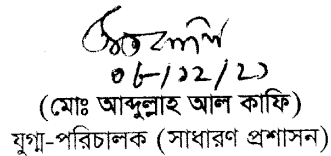 ০৮/১২/২১
(মোঃ আব্দুল্লাহ আল কাফি)
যুগ্ম-পরিচালক (সাধারণ প্রশাসন)